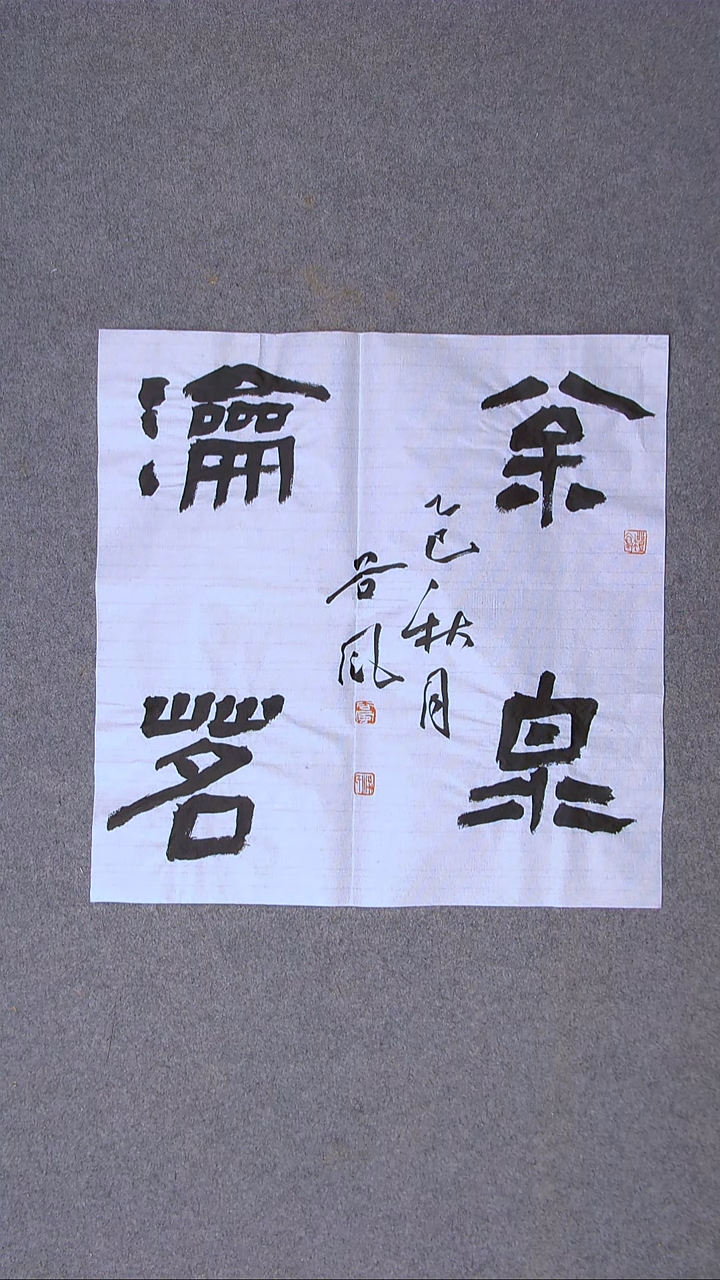 枀泉
瀹茗
乙巳秋月
谷风